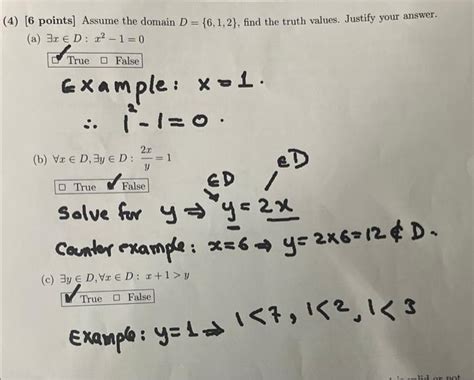 (4) [6 points] Assume the domain D = {6, 1, 2}, find the truth values. Justify your answer.
(a) ∃x ∈ D : x² − 1 = 0
☑ True □ False
Example: x = 1.
∴ 1² - 1 = 0.
(b) ∀x ∈ D, ∃y ∈ D : 2x/y = 1
∈D ∈D
□ True ☑ False
Solve for y ⇒ y = 2x
Counter example: x = 6 ⇒ y = 2×6 = 12 ∉ D.
(c) ∃y ∈ D, ∀x ∈ D : x + 1 > y
☑ True □ False
Example: y = 1 ⇒ 1 < 7, 1 < 2, 1 < 3